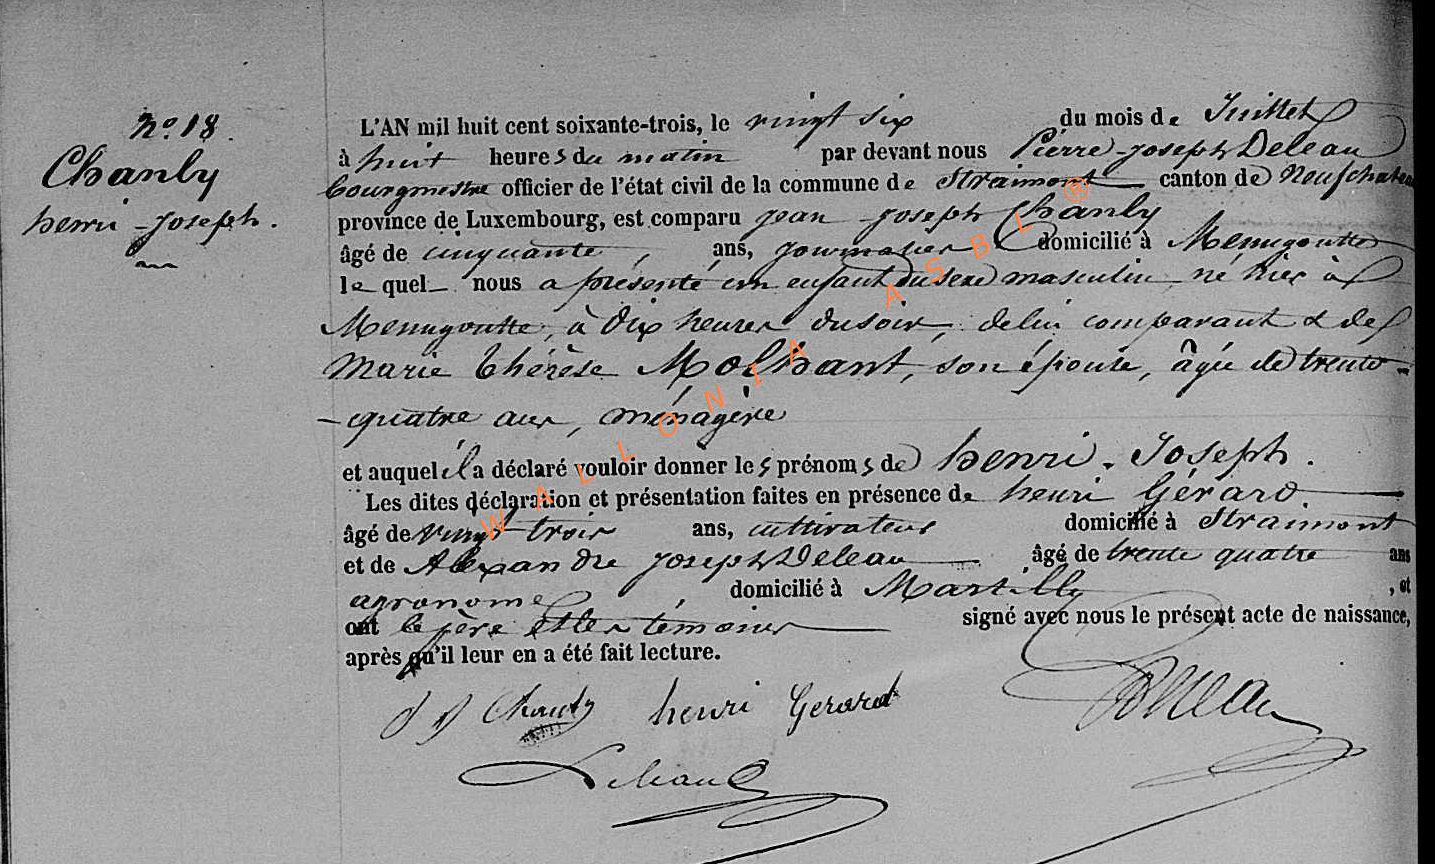 No. 18.
Chanly
henri - joseph.
L'AN mil huit cent soixante-trois, le vingt six du mois de Juillet
à huit heures du matin par devant nous Pierre Joseph Deleau
bourgmestre officier de l'état civil de la commune de Straimont canton de Neufchateau
province de Luxembourg, est comparu jean joseph Chanly
âgé de cinquante, ans, journalier domicilié à Menugoutte
le quel nous a présenté un enfant du sexe masculin né hier à
Menugoutte, à dix heures du soir, de lui comparant & de
Marie thérèse Molhant, son épouse, âgée de trente-
-quatre ans, ménagère
et auquel il a déclaré vouloir donner les prénoms de henri. Joseph.
Les dites déclaration et présentation faites en présence de henri Gérard
âgé de vingt trois ans, cultivateur domicilié à Straimont
et de Alexandre joseph Deleau âgé de trente quatre ans
agronome domicilié à Martilly, et
ont le père et les témoins signé avec nous le présent acte de naissance,
après qu'il leur en a été fait lecture.
J J Chanly henri Gerard Deleau
WALLONIA ASBL ®